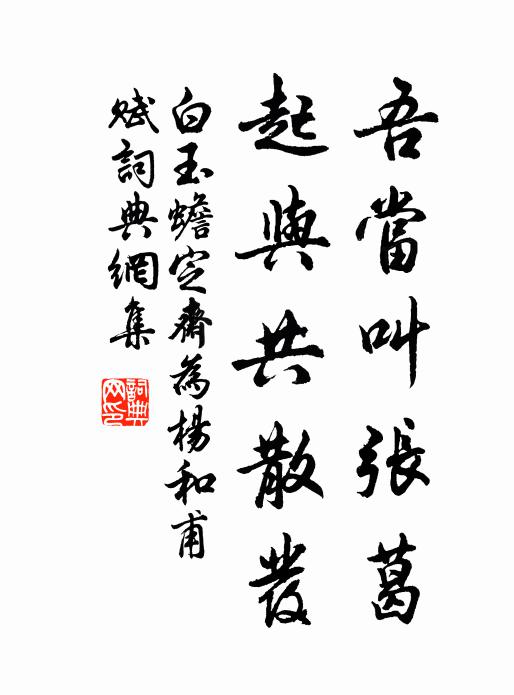 吾當叫張葛
起與共散發
白玉蟾定齋為楊和甫
賦詞典網集
詞典網印